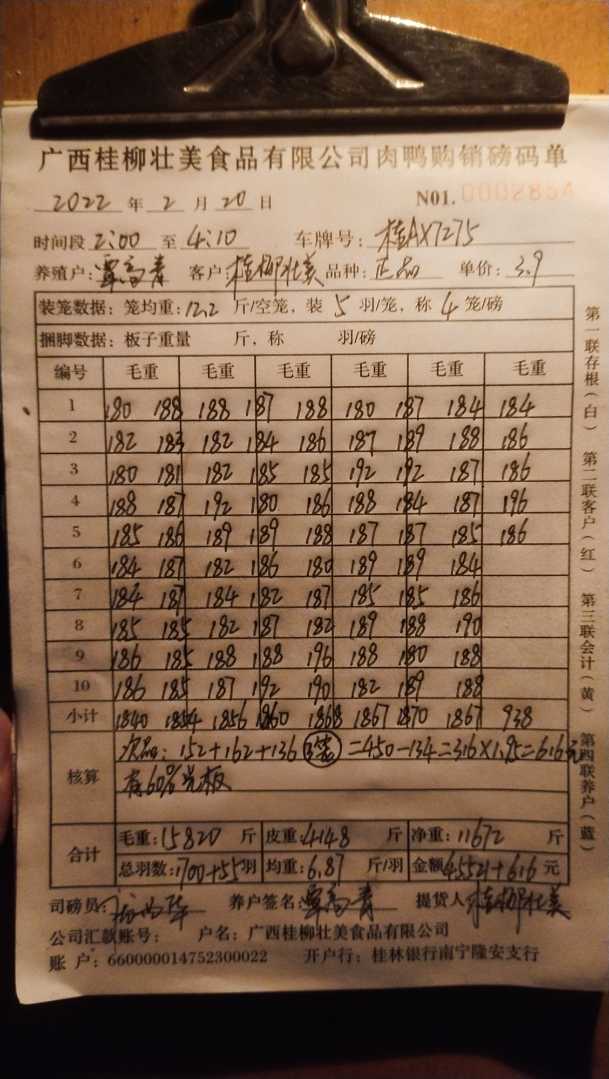 广西桂柳壮美食品有限公司肉鸭购销磅码单
2022 年 2 月 20 日 N01.0002854
时间段 2:00 至 4:10 车牌号: 桂AX7275
养殖户: 覃高青 客户: 桂柳壮美 品种: 正品 单价: 3.9
装笼数据: 笼均重: 12.2 斤/空笼, 装 5 羽/笼, 称 4 笼/磅
捆脚数据: 板子重量 斤, 称 羽/磅
编号 毛重 毛重 毛重 毛重 毛重 毛重
1 180 188 188 187 188 180 187 184 184
2 182 183 182 184 186 187 189 188 186
3 180 181 182 185 185 192 192 187 186
4 188 187 192 180 186 188 184 187 196
5 185 186 189 189 188 187 187 185 186
6 184 187 182 186 180 189 189 184
7 184 187 184 182 187 185 185 186
8 185 185 182 187 182 189 188 190
9 186 185 188 188 196 188 180 188
10 186 185 187 192 190 182 189 188
小计 1840 1854 1856 1860 1868 1867 1870 1867 938
核算 次品: 152+162+136 =450-134=316×1.95=616元
有60%光板
合计 毛重: 15820 斤 皮重: 4148 斤 净重: 11672 斤
总羽数: 1700+55 羽 均重: 6.87 斤/羽 金额 45521+616 元
司磅员: 养户签名: 覃高青 提货人 桂柳壮美
公司汇款账号: 户名: 广西桂柳壮美食品有限公司
账 户: 660000014752300022 开户行: 桂林银行南宁隆安支行
第一联存根(白) 第二联客户(红) 第三联会计(黄) 第四联养户(蓝)